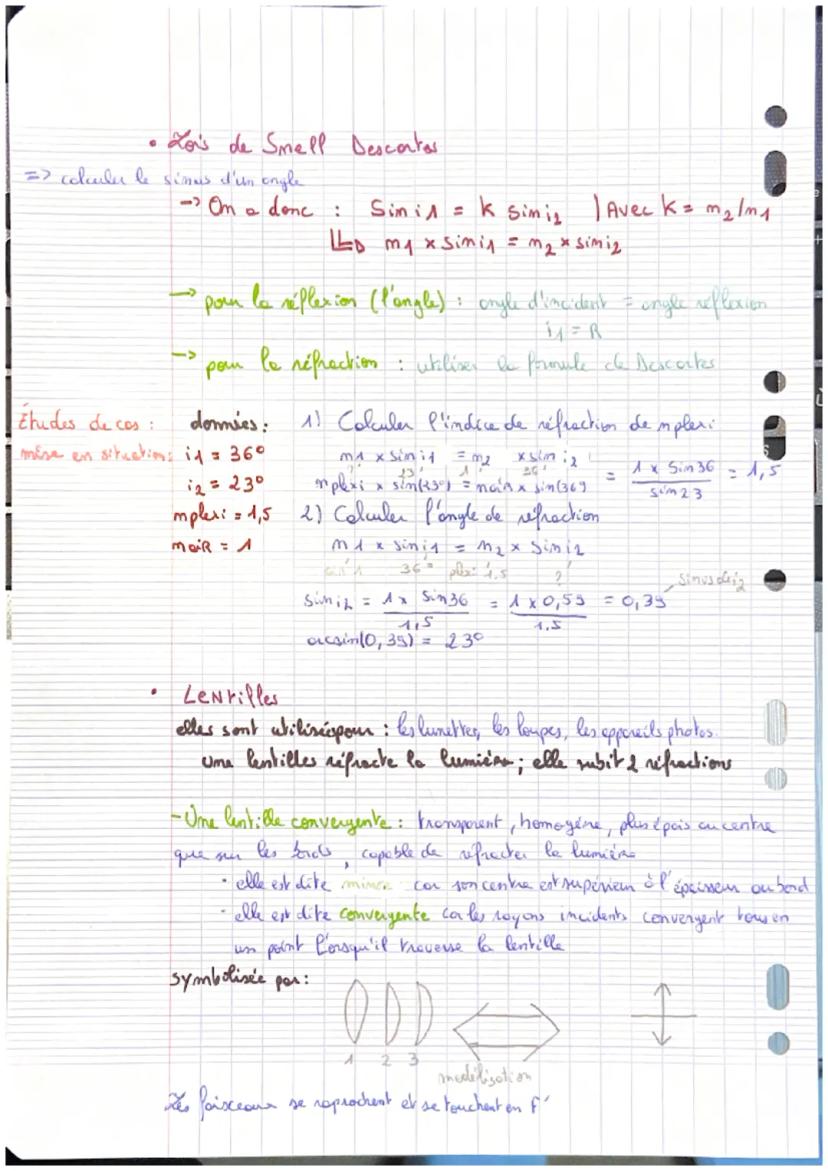 • Lois de Snell Descartes
=> calculer le sinus d'un angle
-> On a donc : Sin i1 = K sin i2 | Avec K = n2/n1
n1 x sin i1 = n2 x sin i2
-> pour la réflexion (l'angle) : angle d'incident = angle réflexion
i1 = R
-> pour la réfraction : utiliser la formule de Descartes
Études de cas : données : 1) Calculer l'indice de réfraction de n plexi
mise en situation : i1 = 36° n1 x sin i1 = n2 x sin i2
? 23° 1 36°
i2 = 23° nplexi x sin(23°) = nair x sin(36) = 1 x Sin36 / sin 23 = 1,5
nplexi = 1,5 2) Calculer l'angle de réfraction
nair = 1 n1 x sin i1 = n2 x sin i2
air 1 36° plexi 1.5 ? sinus de i2
sin i2 = 1 x Sin36 / 1,5 = 1 x 0,59 / 1.5 = 0,39
arcsin(0,39) = 23°
• Lentilles
elles sont utilisées pour : les lunettes, les loupes, les appareils photos.
une lentilles réfracte la lumière ; elle subit 2 réfractions
- Une lentille convergente : transparent, homogène, plus épais au centre
que sur les bords, capable de réfracter la lumière
• elle est dite mince car son centre est supérieur à l'épaisseur au bord
• elle est dite convergente car les rayons incidents convergent tous en
un point lorsqu'il traverse la lentille
symbolisée par :
1 2 3
modélisation
Les faisceaux se raprochent et se touchent en F'